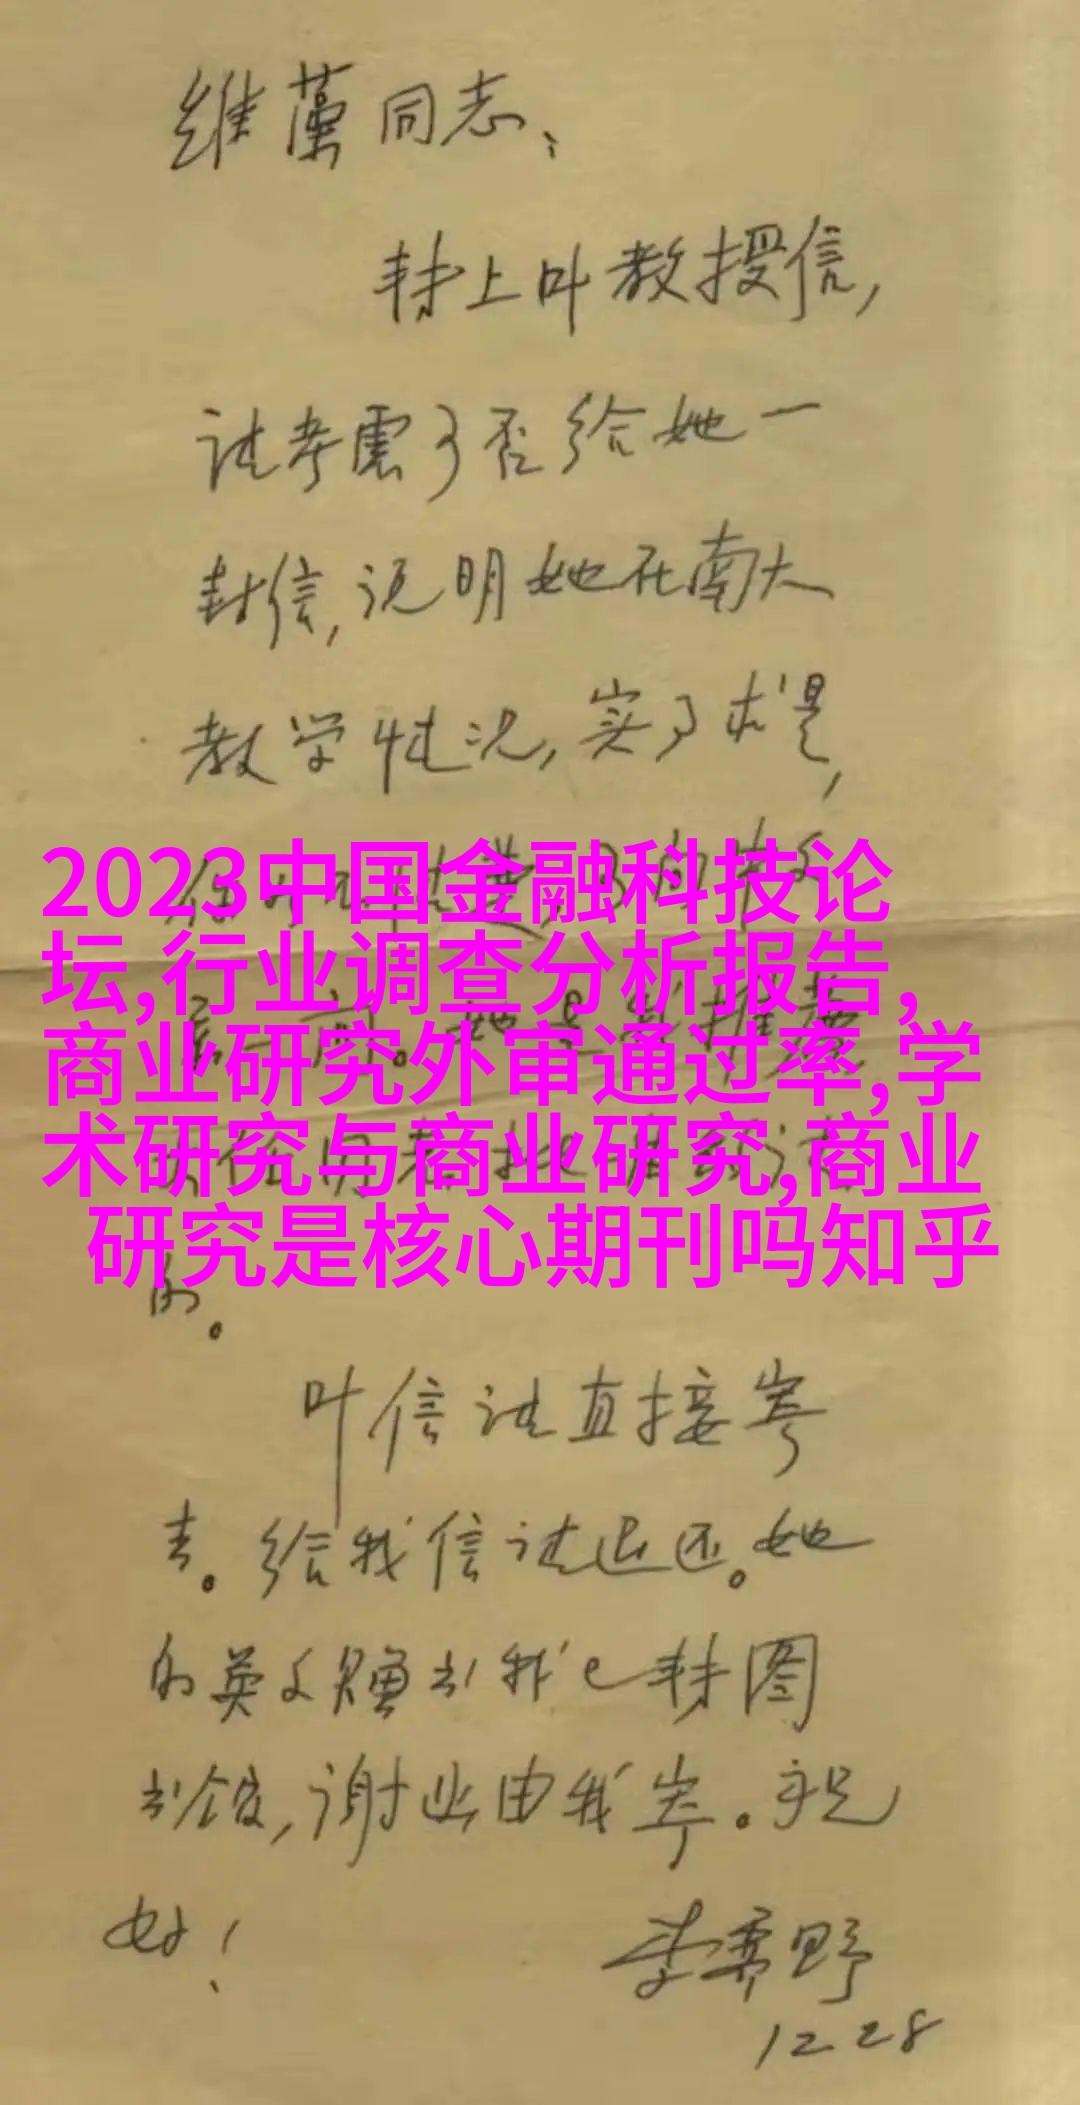 维藻同志:
转上叶教授信,
请考虑可否给她一
封信,说明她在南大
教学情况,实事求是,
2023中国金融科技论
坛,行业调查分析报告,
商业研究外审通过率,学
术研究与商业研究,商业
研究是核心期刊吗知乎
的。
叶信请直接寄
去。给我信请退还。她
的英文赠书我已转图
书馆,谢业由我寄。祝
好!
李霁野
12 28